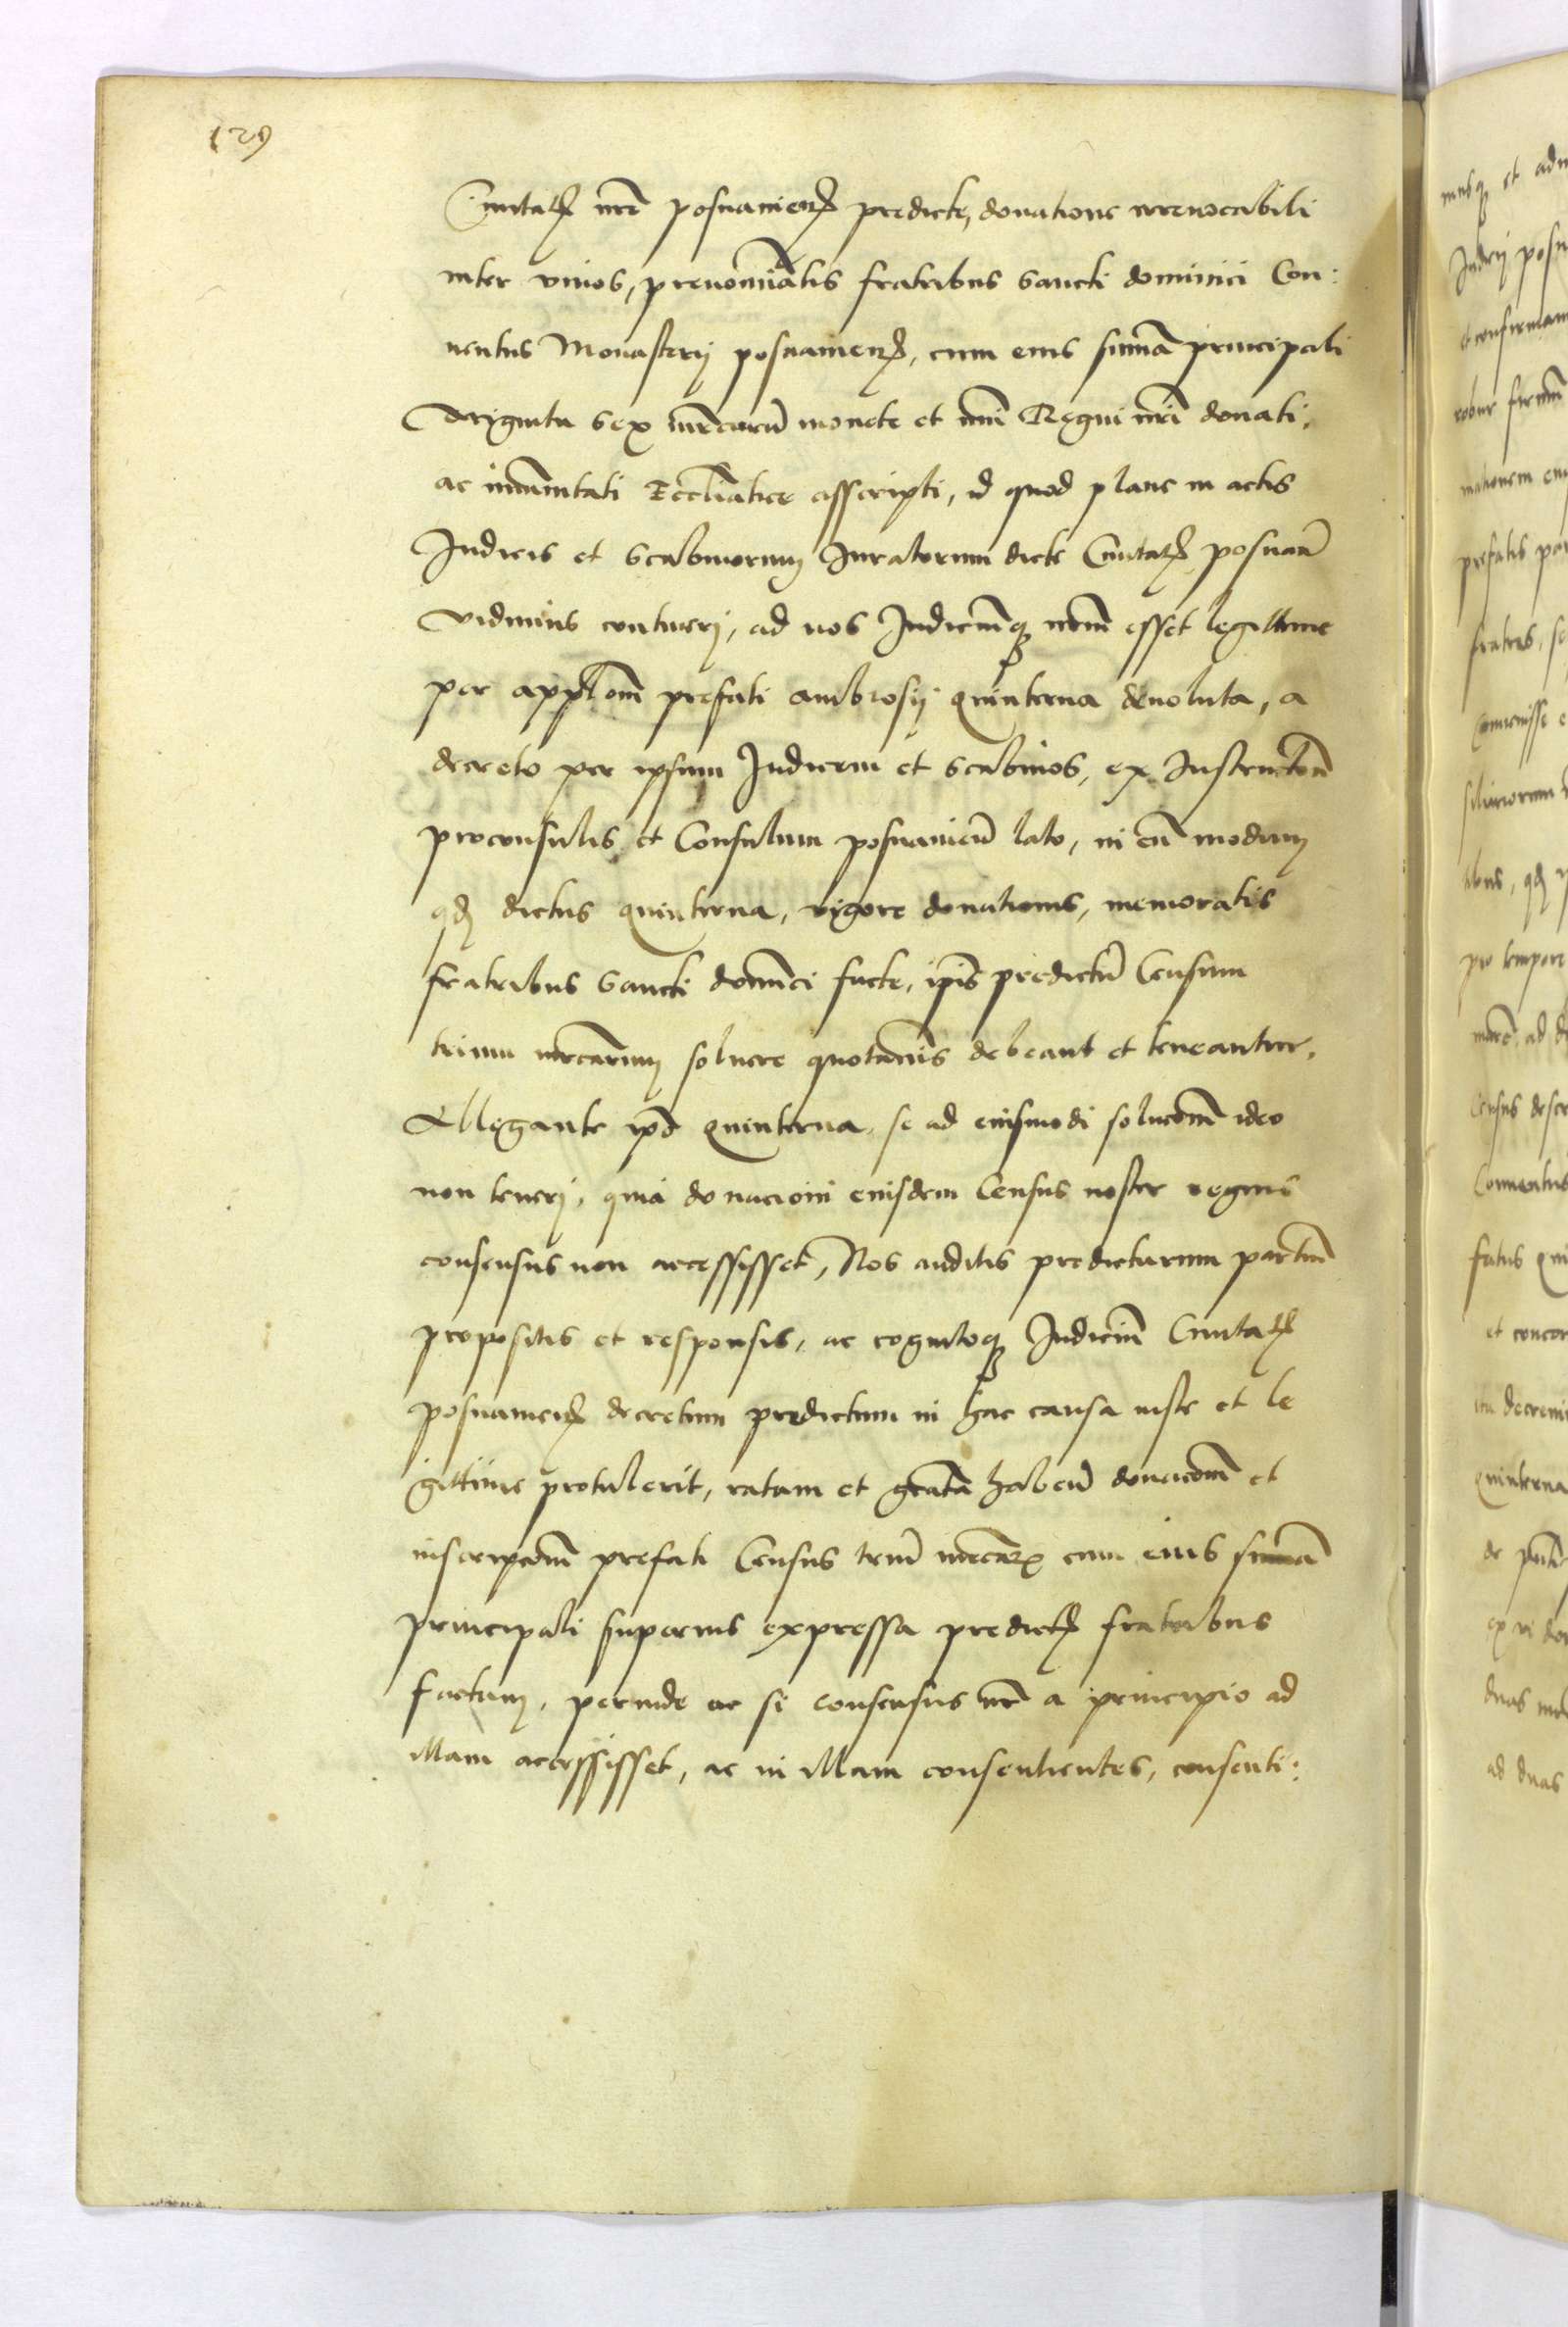 129
Ciuitatis nrē posnaniens̄ predicte, donatione irreuocabili
inter viuos, prenominātis fratribus sancti dominici Con:
uentus Monasterij posnaniens̄, cum eius summā principali
Triginta sex mrcarū monete et nūi Regni nrī donati,
ac inmūnitati Eccliāstice asscripti, id quod plane in actis
Iudicis et scabinorum Iuratorum dicte Ciuitatis posnanī
vidimus contineri, ad nos Iudiciumq nrm̄ esset legittime
per applōm prefati ambrosij quinterna deuoluta, a
decreto per ipsum Iudicem et scabinos, ex Instructōn
proconsulis et Consulum posnanien̄ lato, in eū modum
qd dictus quinterna, vigore donationis, memoratis
fratribus sancti domīci facte, ipīs predictū Censum
trium mrcarum soluere quotannis debeant et teneantur,
Allegante ipō quinterna se ad eiusmodi solucōm ideo
non teneri, quia donacioni eiusdem Census noster regius
consensus non accessisset, Nos auditis predictarum partiū
propositis et responsis, ac cognitoq Iudiciū Ciuitatis
posnaniens̄ decretum predictum in hac causa iuste et le
gittime protulerit, ratam et gratā haben̄ donacōm et
inscripcōm prefati Census triū mrcarz cum eius summā
principali superius expressa predictis fratribus
factam, perinde ac si consensus nr̄ a principio ad
illam accessisset, ac in illam consentientes, consenti: